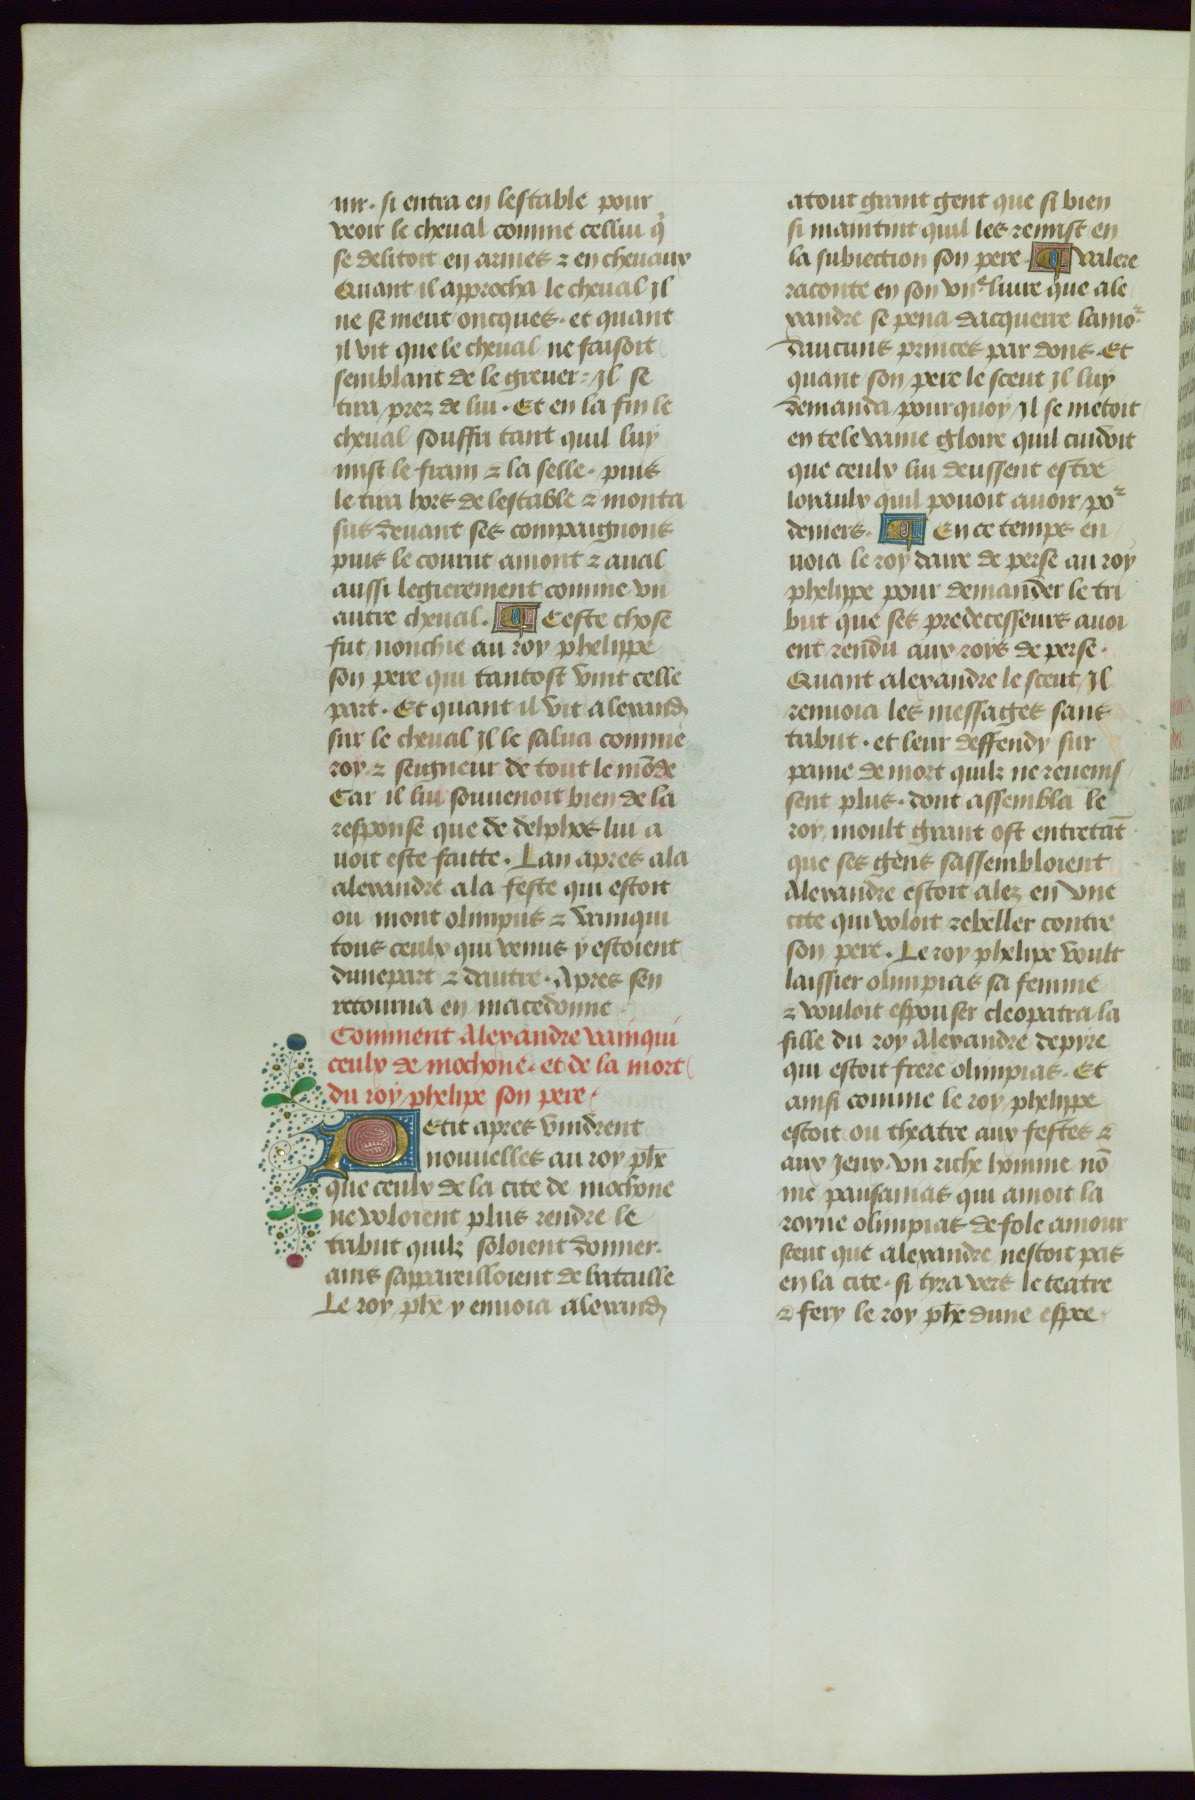 nir. si entra en lestable pour
veoir le cheual comme cellui q̄
se delitoit en armes ⁊ en cheuaux
Quant il approcha le cheual Jl
ne se meut oncques. et quant
jl vit que le cheual ne faisoit
semblant de le greuer. Jl se
tira prez de lui. Et en la fin le
cheual souffri tant quil luy
mist le frain ⁊ la selle. puis
le tira hors de lestable ⁊ monta
sus deuant ses compaignons
puis le courut amont ⁊ aual
aussi legierement comme vn
autre cheual. Ceste chose
fut nonchie au roy phelippe
son pere qui tantost vint celle
part. Et quant il vit alexandr̄
sur le cheual Jl le salua comme
roy ⁊ seigneur de tout le mōde
Car il lui souuenoit bien de la
response que de delphos lui a
uoit este faitte. Lan apres ala
alexandre a la feste qui estoit
ou mont olimpus ⁊ vainqui
tous ceulx qui venus y estoient
dune part ⁊ dautre. Apres sen
retourna en macedonne
Comment Alexandre vainqui
ceulx de mochone. et de la mort
du roy phelipe son pere
Petit apres vindrent
nouuelles au roy phē
que ceulx de la cite de mochone
ne voloient plus rendre le
trabut quilz soloient donner.
ains sappareilloient de bataille
Le roy phē y enuoia alexandr̄
atout grant gent que si bien
si maintint quil les remist en
la subiection son pere. valere
raconte en son viiᵉ liure que ale
xandre se pena dacquerre lamoʳ
daucuns princes par dons. Et
quant son pere le sceut Jl luy
demanda pourquoy Jl se metoit
en tele vaine gloire quil cuidoit
que ceulx lui deussent estre
loyaulx quil pouoit auoir poʳ
deniers. En ce temps en
uoia le roy daire de perse au roy
phelippe pour demander le tri
but que ses predecesseurs auoi
ent rendu aux roys de perse.
Quant alexandre le sceut Jl
renuoia les messages sans
trabut. et leur deffendy sur
paine de mort quilz ne reuenis
sent plus. dont assembla le
roy moult grant ost entretāt
que ses gens sassembloient
Alexandre estoit alez en vne
cite qui voloit rebeller contre
son pere. Le roy phelipe voult
laissier olimpias sa femme
⁊ vouloit espouser cleopatra la
fille du roy Alexandre depire
qui estoit frere olimpias. Et
ainsi comme le roy phelippe
estoit ou theatre aux festes ⁊
aux Jeux. vn riche homme nō
me pausanias qui amoit la
royne olimpias de fole amour
sceut que alexandre nestoit pas
en la cite. si tyra vers le teatre
⁊ fery le roy phē dune espee.